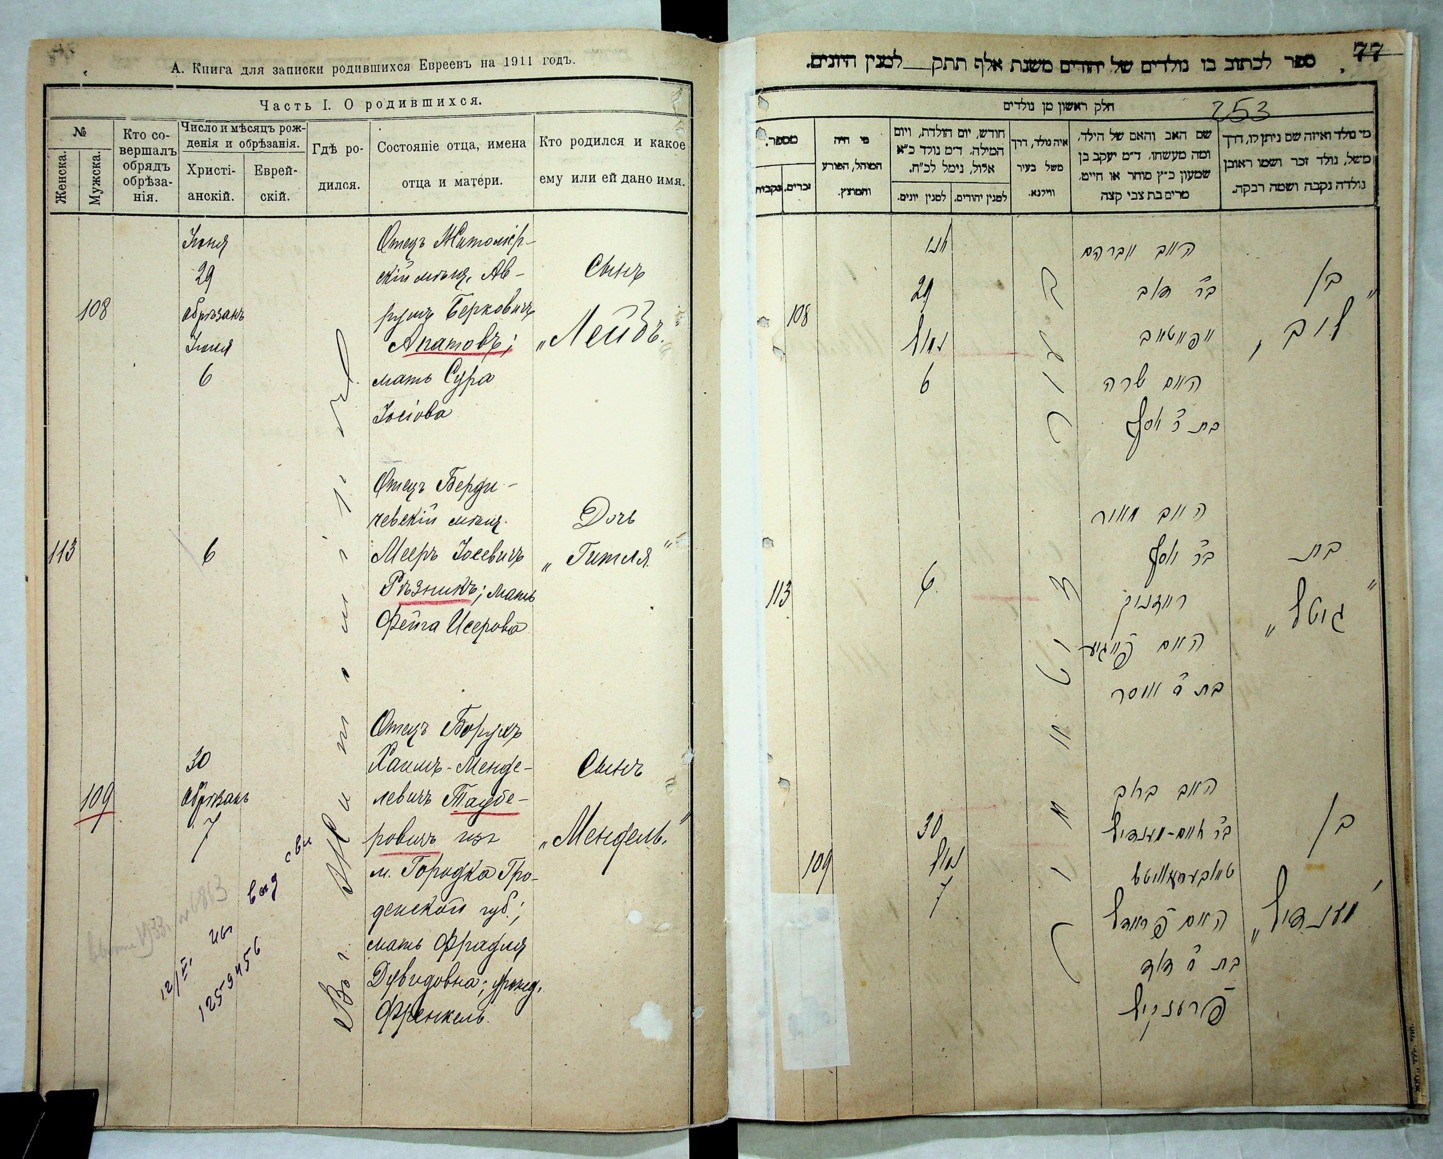 А. Книга для записки родившихся Евреевъ на 1911 годъ.
Часть I. О родившихся.
№
Женска.
Мужска.
Кто со-
вершалъ
обрядъ
обрѣза-
нія.
Число и мѣсяцъ рож-
денія и обрѣзанія.
Христі-
анскій.
Еврей-
скій.
Гдѣ ро-
дился.
Состояніе отца, имена
отца и матери.
Кто родился и какое
ему или ей дано имя.
108
Іюня
29
обрѣзанъ
Іюля
6
Въ г. Житомірѣ
Отецъ Житомір-
скій мѣщ. Ав-
румъ Берковичъ
Апатовъ;
мать Сура
Іосіова
Сынъ
„Лейбъ“
113
6
Отецъ Берди-
чевскій мѣщ.
Мееръ Іосевичъ
Рѣзникъ; мать
Фейга Исерова
Дочь
„Гитля“
109
30
обрѣзанъ
7
Отецъ Борухъ
Хаимъ-Менде-
левичъ Таубе-
ровичъ изъ
м. Городка Гро-
дненской губ.;
мать Фрадля
Дувидовна; урожд.
Френкель.
Сынъ
„Мендель“
12/II
125-9456
77
ספר לכתוב בו נולדים של יהודים משנת אלף תתק למנין היונים.
253
חלק ראשון מן נולדים
מספר.
נקבות.
זכרים.
מי היה
המוהל, הפורע
והמוצץ.
חודש, יום הולדת, ויום
המילה. ד״מ נולד כ״א
אלול, נימל לכ״ח.
למנין יונים.
למנין יהודים.
איה נולד, דרך
משל בעיר
ווילנא.
שם האב והאם של הילד,
ומה מעשהו. ד״מ יעקב בן
שמעון כ״ץ סוחר או חיים,
מרים בת צבי קצה
מי נולד ואיזה שם ניתן לו, דרך
משל, נולד זכר ושמו ראובן
נולדה נקבה ושמה רבקה.
108
יוני
29
יולי
6
זיטאמיר
האב אברהם
בר׳ דוב
אפאטאוו
האם שרה
בת ר׳ יוסף
בן
„לייב“
113
6
האב מאיר
בר׳ יוסף
רעזניק
האם פייגא
בת ר׳ איסר
בת
„גיטל“
109
30
יולי
7
האב ברוך
בר׳ חיים-מענדיל
טאבעראוויטש
האם פראדל
בת ר׳ דוד
פרענקיל
בן
„מענדיל“